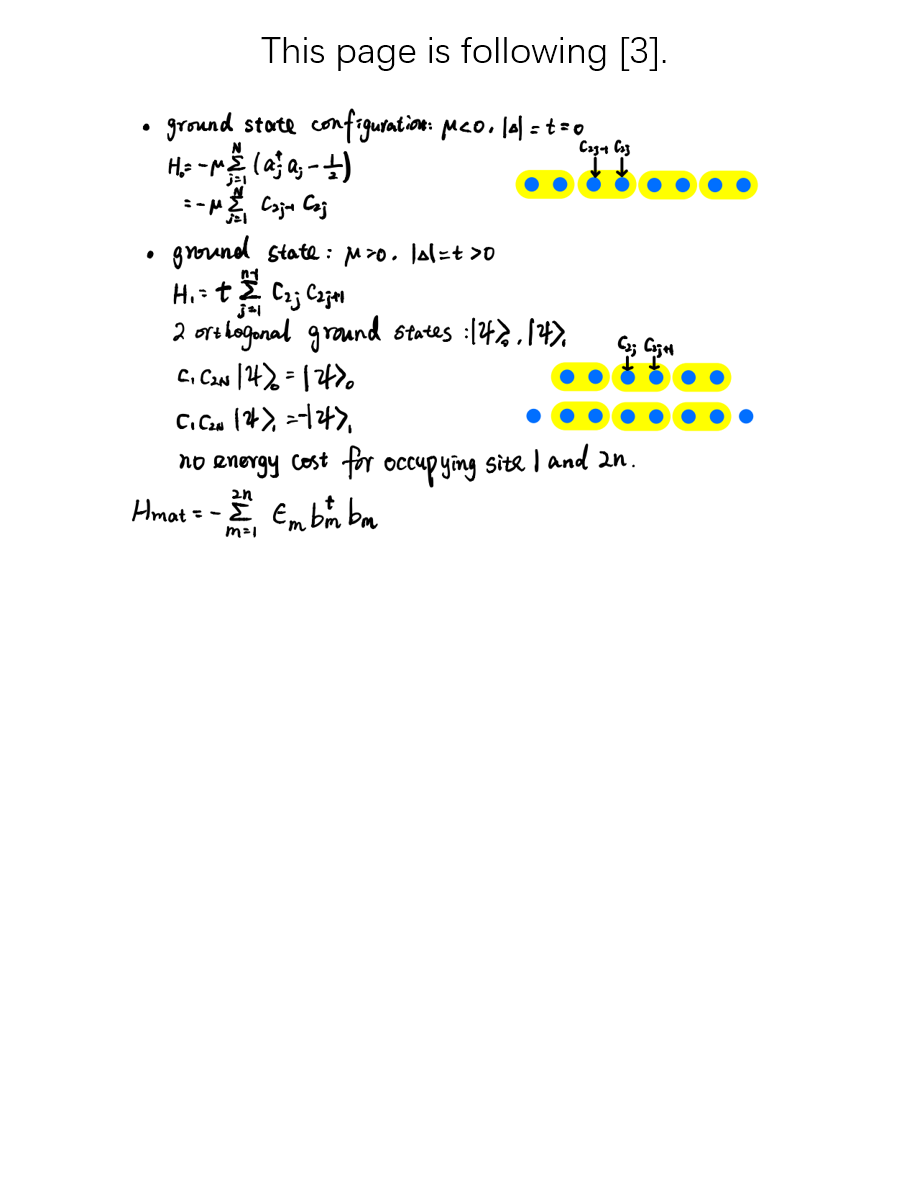 This page is following [3].
• ground state configuration: μ<0, |Δ| = t = 0
H₀ = -μ ∑_{j=1}^{N} (a_j^† a_j - 1/2)
= -μ ∑_{j=1}^{N} C_{2j-1} C_{2j}
C_{2j-1} C_{2j}
• ground state: μ>0, |Δ|=t >0
H₁ = t ∑_{j=1}^{n-1} C_{2j} C_{2j+1}
2 orthogonal ground states : |ψ⟩₀, |ψ⟩₁
C_{2j} C_{2j+1}
C₁ C_{2N} |ψ⟩₀ = |ψ⟩₀
C₁ C_{2N} |ψ⟩₁ = -|ψ⟩₁
no energy cost for occupying site 1 and 2n.
H_{mat} = - ∑_{m=1}^{2n} ϵ_m b_m^† b_m